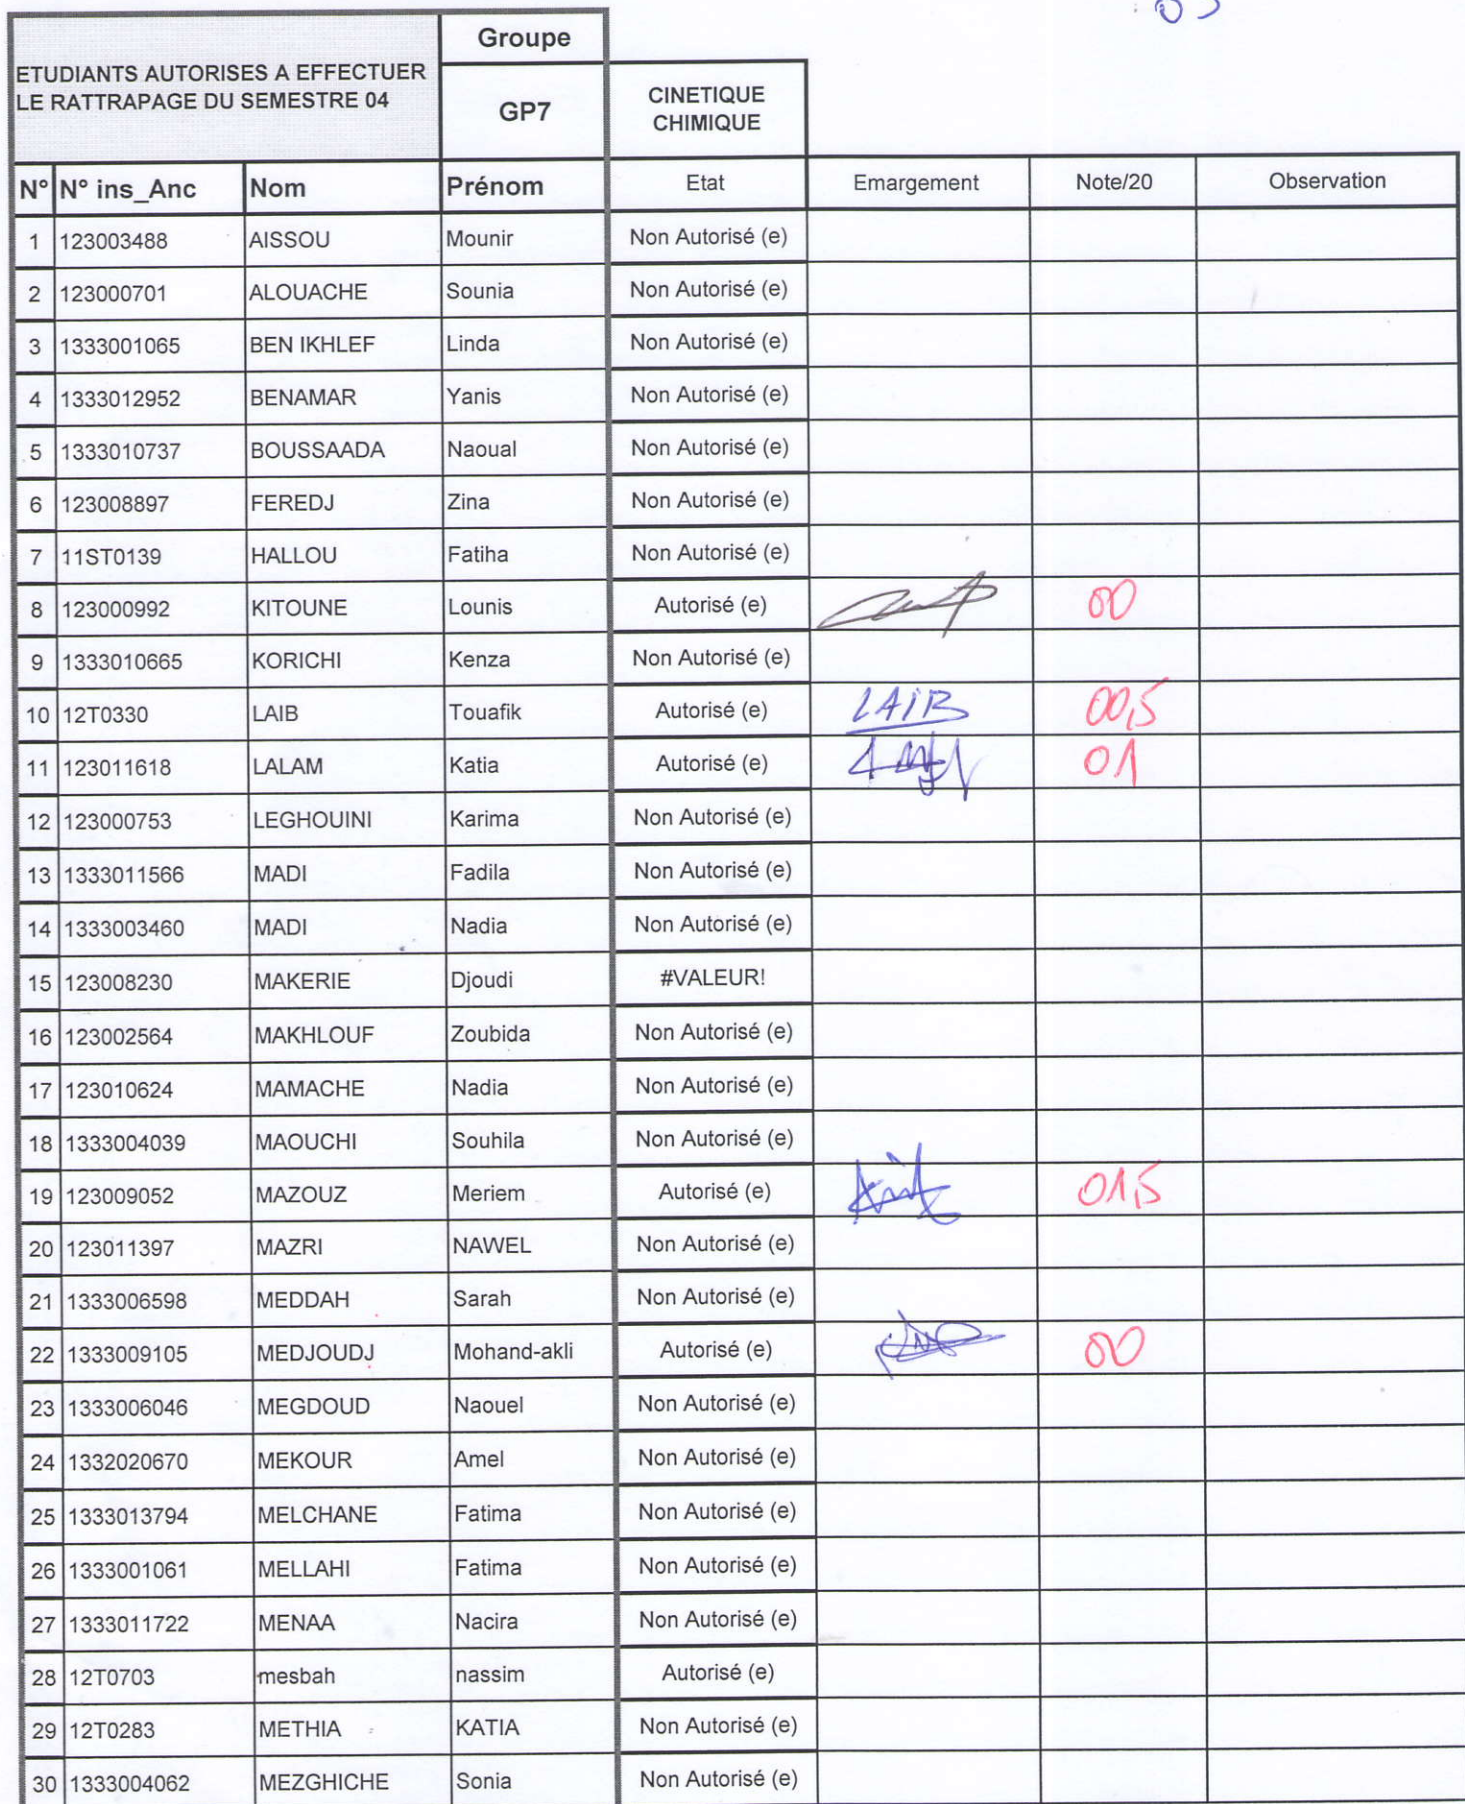 ETUDIANTS AUTORISES A EFFECTUER
LE RATTRAPAGE DU SEMESTRE 04
Groupe
GP7
CINETIQUE
CHIMIQUE
N° N° ins_Anc Nom Prénom Etat Emargement Note/20 Observation
1 123003488 AISSOU Mounir Non Autorisé (e)
2 123000701 ALOUACHE Sounia Non Autorisé (e)
3 1333001065 BEN IKHLEF Linda Non Autorisé (e)
4 1333012952 BENAMAR Yanis Non Autorisé (e)
5 1333010737 BOUSSAADA Naoual Non Autorisé (e)
6 123008897 FEREDJ Zina Non Autorisé (e)
7 11ST0139 HALLOU Fatiha Non Autorisé (e)
8 123000992 KITOUNE Lounis Autorisé (e) 00
9 1333010665 KORICHI Kenza Non Autorisé (e)
10 12T0330 LAIB Touafik Autorisé (e) LAIB 00,5
11 123011618 LALAM Katia Autorisé (e) 01
12 123000753 LEGHOUINI Karima Non Autorisé (e)
13 1333011566 MADI Fadila Non Autorisé (e)
14 1333003460 MADI Nadia Non Autorisé (e)
15 123008230 MAKERIE Djoudi #VALEUR!
16 123002564 MAKHLOUF Zoubida Non Autorisé (e)
17 123010624 MAMACHE Nadia Non Autorisé (e)
18 1333004039 MAOUCHI Souhila Non Autorisé (e)
19 123009052 MAZOUZ Meriem Autorisé (e) 01,5
20 123011397 MAZRI NAWEL Non Autorisé (e)
21 1333006598 MEDDAH Sarah Non Autorisé (e)
22 1333009105 MEDJOUDJ Mohand-akli Autorisé (e) 00
23 1333006046 MEGDOUD Naouel Non Autorisé (e)
24 1332020670 MEKOUR Amel Non Autorisé (e)
25 1333013794 MELCHANE Fatima Non Autorisé (e)
26 1333001061 MELLAHI Fatima Non Autorisé (e)
27 1333011722 MENAA Nacira Non Autorisé (e)
28 12T0703 mesbah nassim Autorisé (e)
29 12T0283 METHIA KATIA Non Autorisé (e)
30 1333004062 MEZGHICHE Sonia Non Autorisé (e)